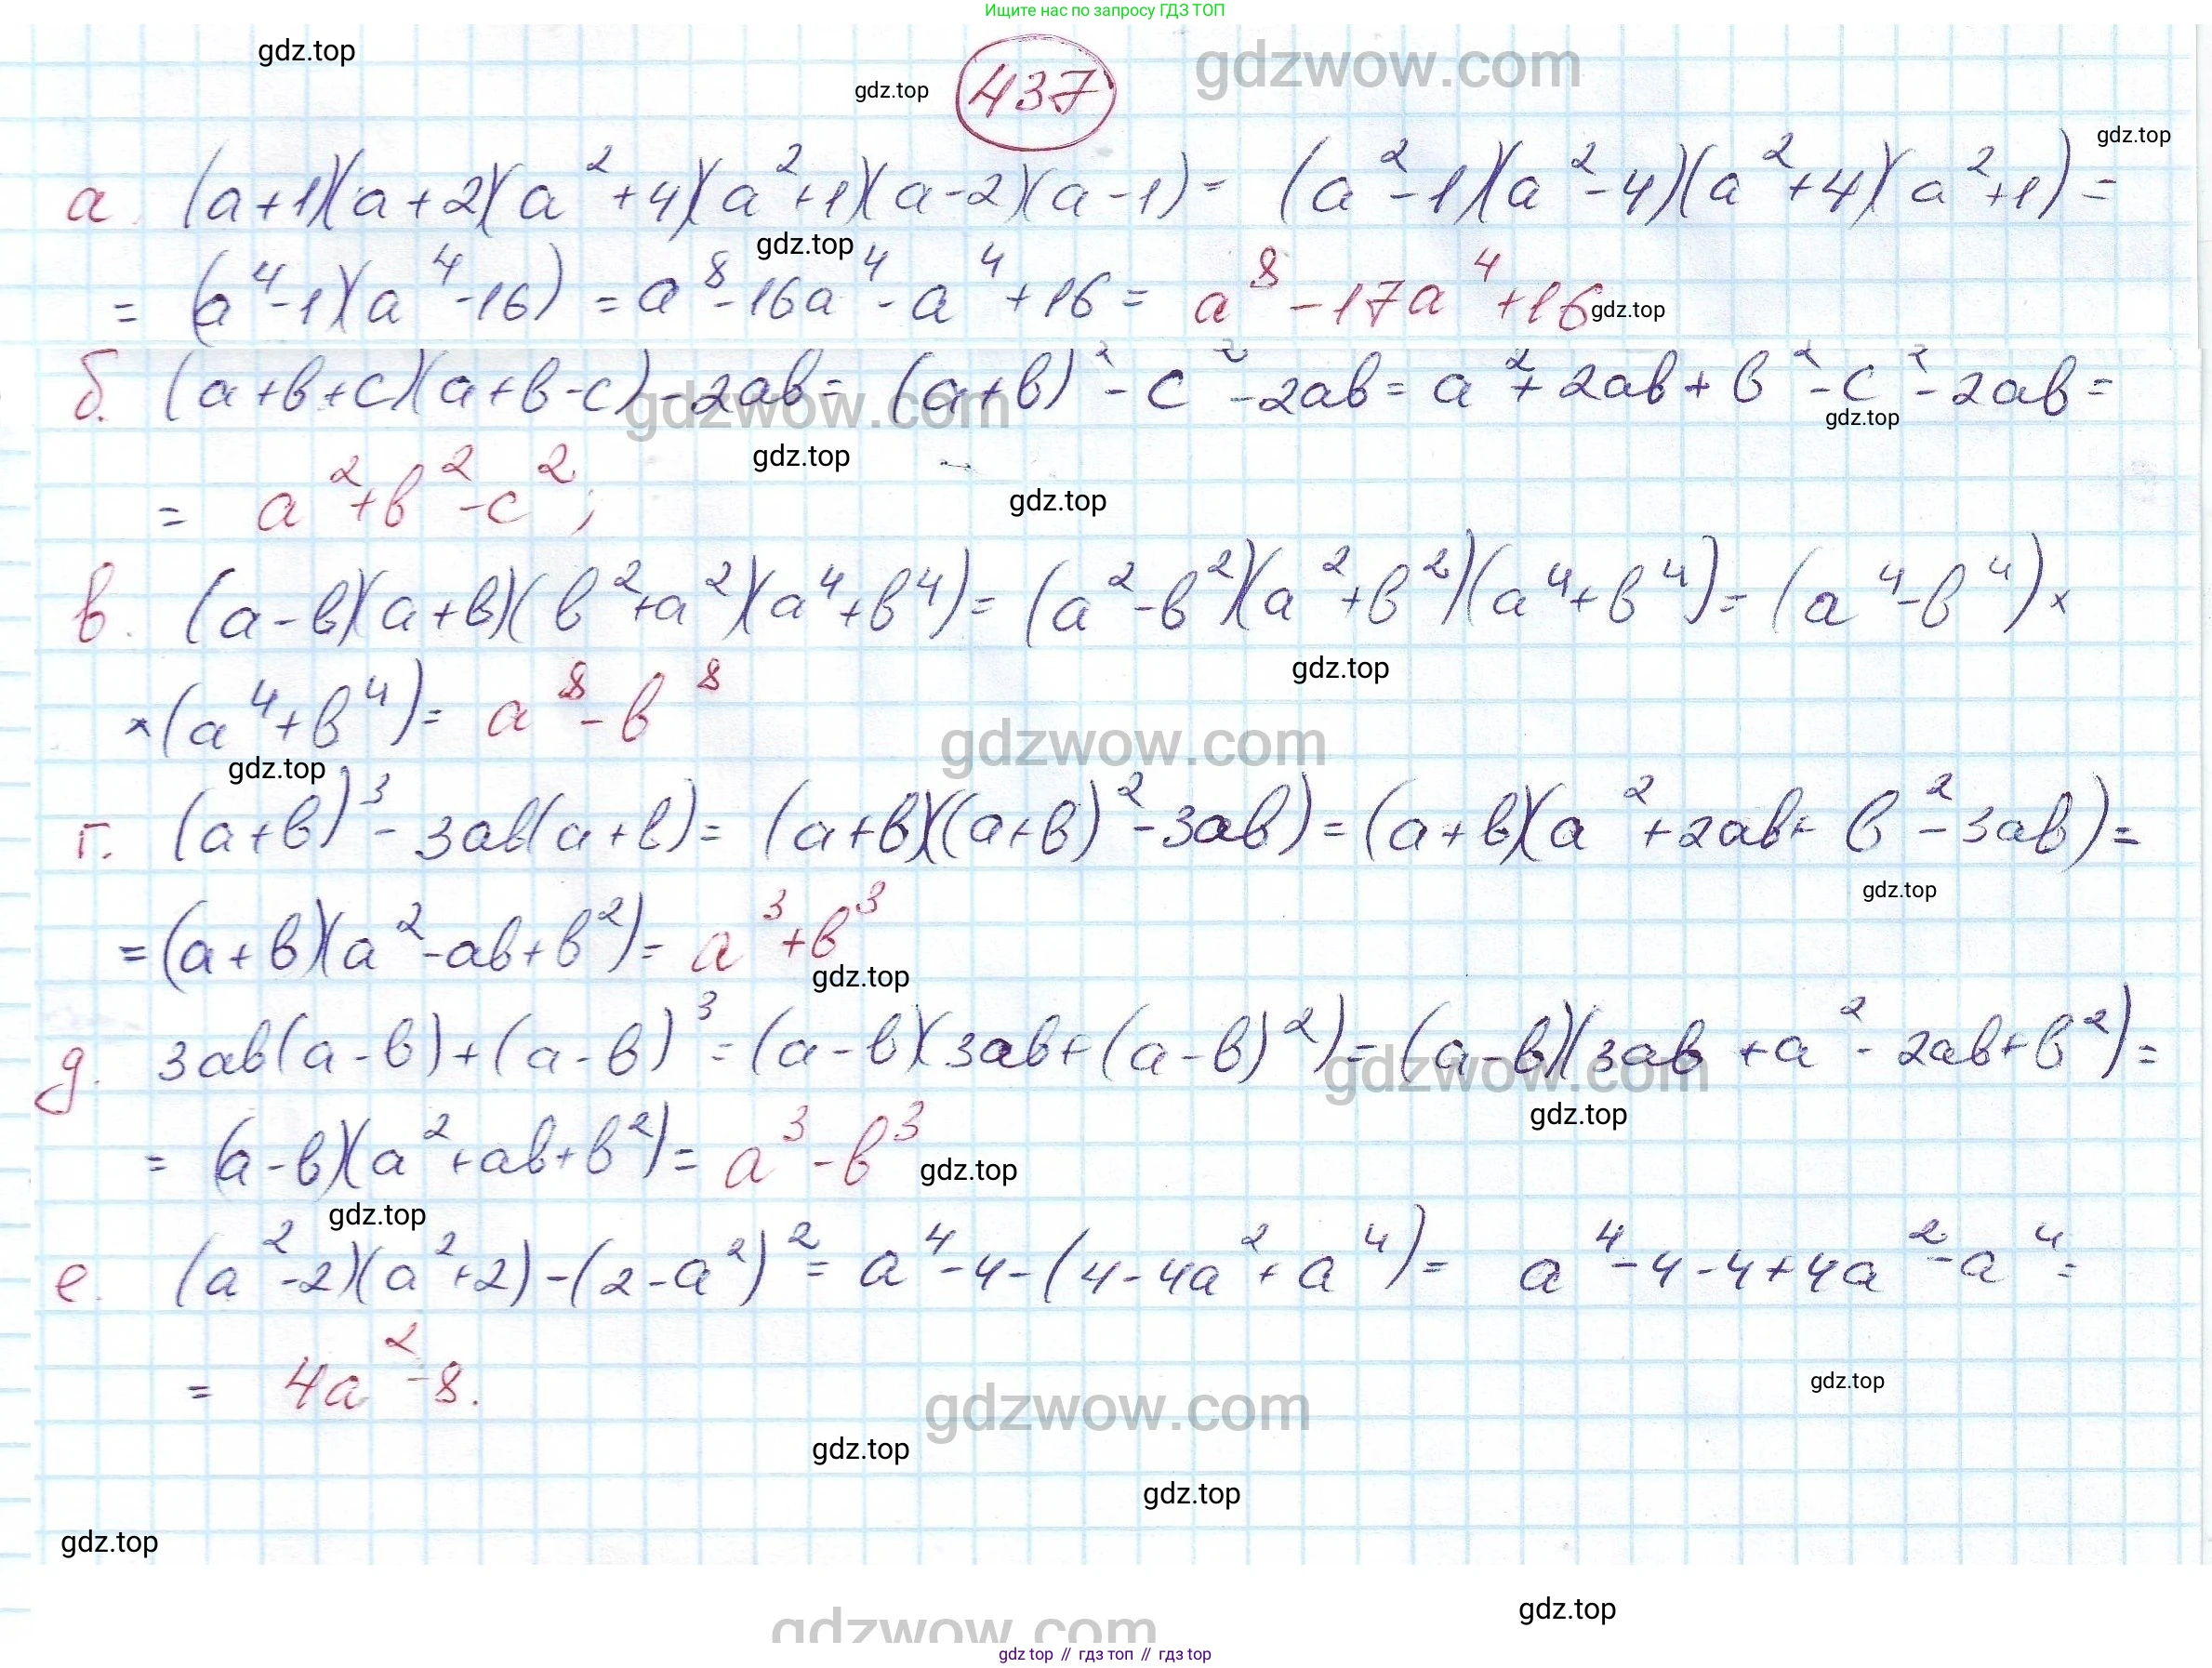 Ищите нас по запросу ГДЗ ТОП
gdz.top
gdz.top
437
gdzwow.com
gdz.top
а. (a+1)(a+2)(a²+4)(a²+1)(a-2)(a-1)= (a²-1)(a²-4)(a²+4)(a²+1)=
gdz.top
= (a⁴-1)(a⁴-16) = a⁸-16a⁴-a⁴+16= a⁸-17a⁴+16
gdz.top
б. (a+b+c)(a+b-c)-2ab= (a+b)²-c²-2ab= a²+2ab+b²-c²-2ab=
gdzwow.com
gdz.top
gdz.top
= a²+b²-c²;
gdz.top
в. (a-b)(a+b)(b²+a²)(a⁴+b⁴)= (a²-b²)(a²+b²)(a⁴+b⁴)= (a⁴-b⁴)×
gdz.top
×(a⁴+b⁴)= a⁸-b⁸
gdzwow.com
gdz.top
г. (a+b)³- 3ab(a+b)= (a+b)((a+b)²-3ab)=(a+b)(a²+2ab+b²-3ab)=
gdz.top
=(a+b)(a²-ab+b²)= a³+b³
gdz.top
д. 3ab(a-b)+(a-b)³=(a-b)(3ab+(a-b)²)=(a-b)(3ab+a²-2ab+b²)=
gdzwow.com
gdz.top
= (a-b)(a²+ab+b²)= a³-b³
gdz.top
gdz.top
е. (a²-2)(a²+2)-(2-a²)²= a⁴-4-(4-4a²+a⁴)= a⁴-4-4+4a²-a⁴=
= 4a²-8.
gdz.top
gdzwow.com
gdz.top
gdz.top
gdz.top
gdz.top
gdzwow.com
gdz.top // гдз топ // gdz.top